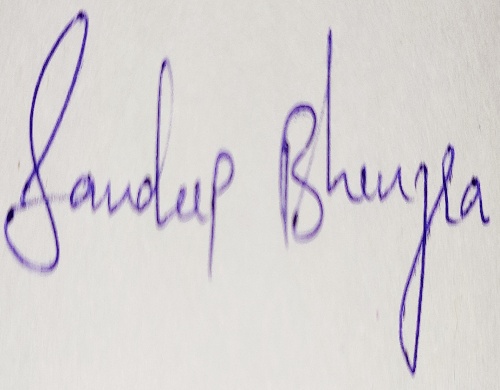 Sandeep Bhengra